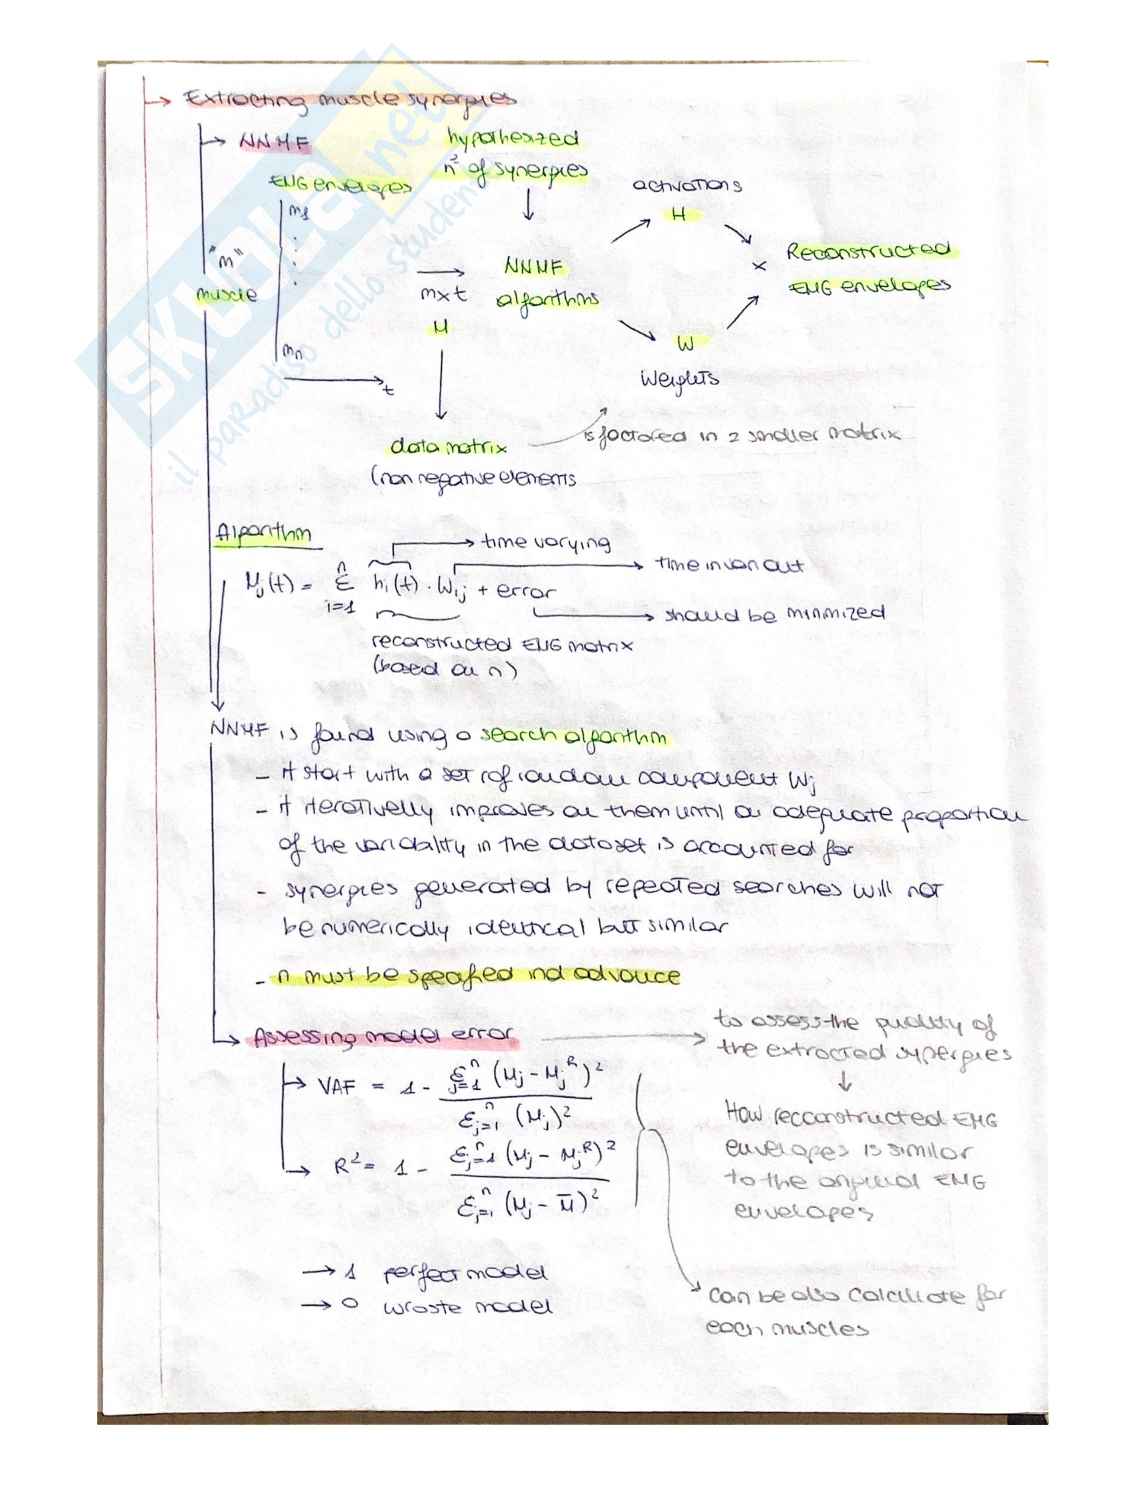 → Extracting muscle synergies
→ NNMF
hypothesized
n° of synergies
EMG envelopes
m1
"m"
muscle
mn
t
→
mxt
M
NNMF
algorithms
activations
H
x
W
weights
Reconstructed
EMG envelopes
data matrix
is factored in 2 smaller matrix
(non negative elements
Algorithm
→ time varying
→ time invariant
Mj(t) = Σ i=1 n hi(t) · Wij + error
→ should be minimized
reconstructed EMG matrix
(based on n)
NNMF is found using a search algorithm
- it start with a set of random component Wj
- it iterativelly improves on them until an adequate proportion
of the variability in the dataset is accounted for
- synergies generated by repeated searches will not
be numerically identical but similar
- n must be specified ind advance
→ Assessing model error
→ to assess the quality of
the extracted synergies
↓
How reconstructed EMG
envelopes is similar
to the original EMG
envelopes
→ VAF = 1 - Σ j=1 n (Mj - MjR)² / Σ j=1 n (Mj)²
→ R² = 1 - Σ j=1 n (Mj - MjR)² / Σ j=1 n (Mj - M̄)²
→ 1 perfect model
→ 0 wroste model
can be also calculate for
each muscles
skuola.net
il paradiso dello studente